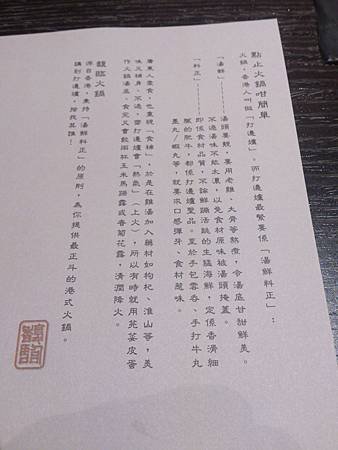 點止火鍋咁簡單
火鍋，香港人叫做「打邊爐」。而打邊爐最緊要係「湯鮮料正」：
「湯鮮」————湯頭要靚，要用老雞、大骨等熬煮，令湯底甘甜鮮美。
味道不能太濃，以免食材原味被湯頭掩蓋。
「料正」————即係食材品質，不論鮮蹦活跳的生猛海鮮，定係香滑細
膩的肥牛，都係打邊爐聖品。至於手包雲吞、手打牛丸
墨丸／蝦丸等，就要求口感彈牙、食材惹味。
廣東人愛食，也重視「食補」，於是在雞湯加入藥材如枸杞、淮山等，美
味又補身。不過，齋打邊爐會「熱氣」（上火），所以有時就用芫荽皮蛋
作火鍋湯底。食完又會飲用杯玉米馬蹄露或香菊花露，清潤降火。
馥臨火鍋
源自香港，秉持「湯鮮料正」的原則，為你提供最正斗的港式火鍋。
講到打邊爐，除我其誰！